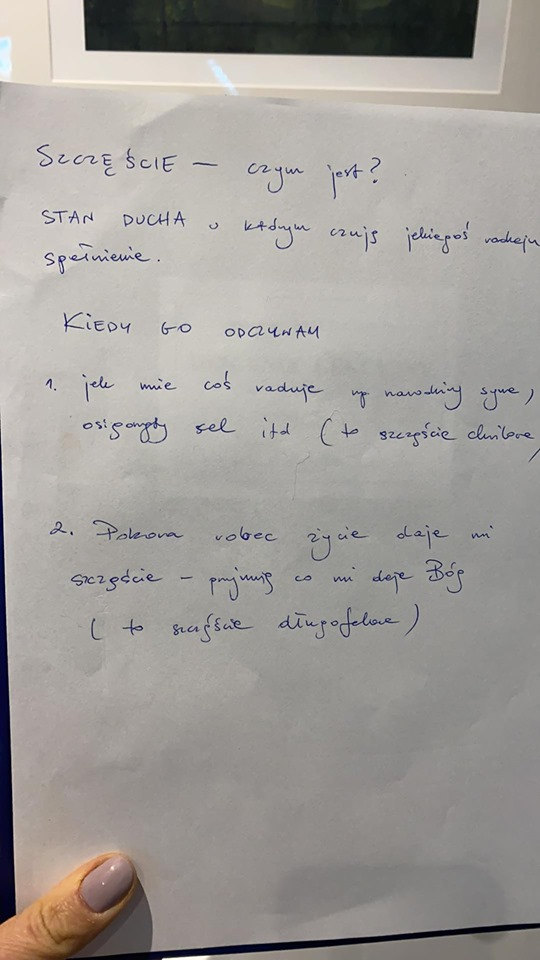 SZCZĘŚCIE — czym jest?
STAN DUCHA w którym czuję jakiegoś rodzaju
spełnienie.
KIEDY GO ODCZUWAM
1. jak mnie coś raduje np narodziny syna,
osiągnięty cel itd (to szczęście chwilowe)
2. Pokora wobec życia daje mi
szczęście – przyjmuję co mi daje Bóg
(to szczęście długofalowe)